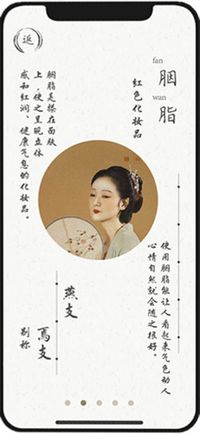 返
fan
胭
wan
脂
红色化妆品
胭脂是搽在面颊
上,使之呈现立体
感和红润、健康气息的化妆品。
使用胭脂能让人看起来气色动人
心情自然就会随之很好。
燕支
焉支
别称